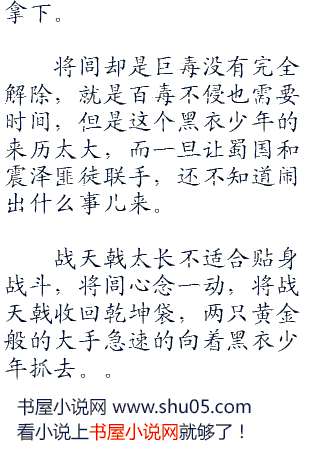 拿下。
将闾却是巨毒没有完全
解除，就是百毒不侵也需要
时间，但是这个黑衣少年的
来历太大，而一旦让蜀国和
震泽匪徒联手，还不知道闹
出什么事儿来。
战天戟太长不适合贴身
战斗，将闾心念一动，将战
天戟收回乾坤袋，两只黄金
般的大手急速的向着黑衣少
年抓去。。
书屋小说网 www.shu05.com
看小说上书屋小说网就够了！